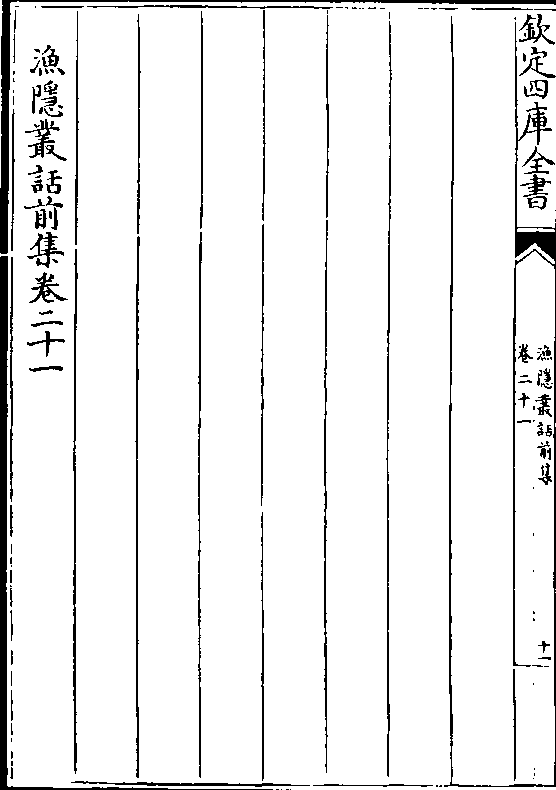 欽定四庫全書
漁隱叢話前集
卷二十一
十一
漁隱叢話前集卷二十一